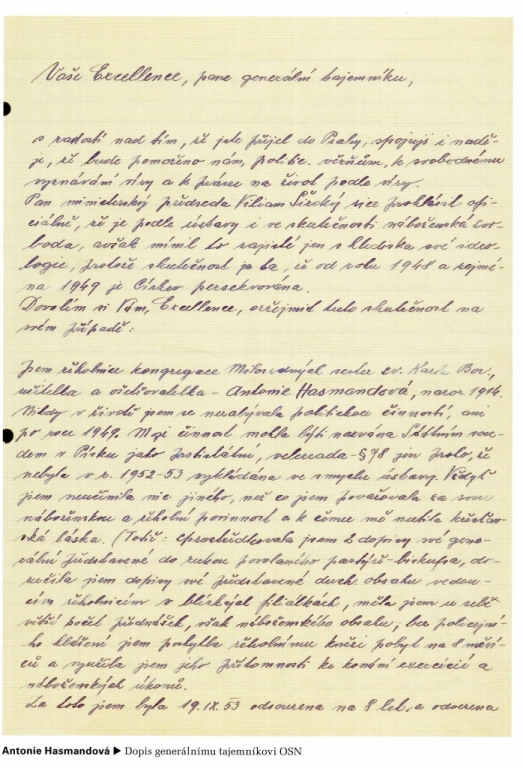 Vaše Excellence, pane generální tajemníku,
s radostí nad tím, že jste přijel do Prahy, spojuji i nadě-
ji, že bude pomoženo nám, politic. vězňům, k svobodnému
vyznávání víry a k právu na život podle víry.
Pan ministerský předseda Viliam Široký sice prohlásil ofi-
ciálně, že je podle ústavy i ve skutečnosti náboženská svo-
boda, avšak mínil to zajisté jen s hlediska své ideo-
logie, protože skutečnost je ta, že od roku 1948 a zejmé-
na 1949 je Církev persekvována.
Dovolím si Vám, Excellence, ozřejmit tuto skutečnost na
svém případě:
Jsem řeholnice kongregace Milosrdných sester sv. Karla Bor.,
učitelka a ošetřovatelka - Antonie Hasmandová, naroz. 1914.
Nikdy v životě jsem se nezabývala politickou činností, ani
po roce 1949. Moje činnost mohla býti nazvána Státním sou-
dem v Písku jako protistátní, velezrada - § 78 jen proto, že
nebyla v r. 1952-53 vykládána ve smyslu ústavy. Vždyť
jsem neučinila nic jiného, než co jsem považovala za svou
náboženskou a řeholní povinnost a k čemu mě nutila křesťan-
ská láska. (Totiž: zprostředkovala jsem 2 dopisy své gene-
rální představené do rukou povolaného pastýře-biskupa, do-
ručila jsem dopisy své představené duch. obsahu vedou-
cím řeholnicím v blízkých filiálkách, měla jsem u sebe
větší počet přednášek, však náboženského obsahu; bez policejní-
ho hlášení jsem poskytla řeholnímu knězi pobyt na 8 měsí-
ců a využila jsem jeho přítomnosti ke konání exercicií a
náboženských úkonů.
Za toto jsem byla 19.IX.53 odsouzena na 8 let, a odvezena
Antonie Hasmandová ▶ Dopis generálnímu tajemníkovi OSN